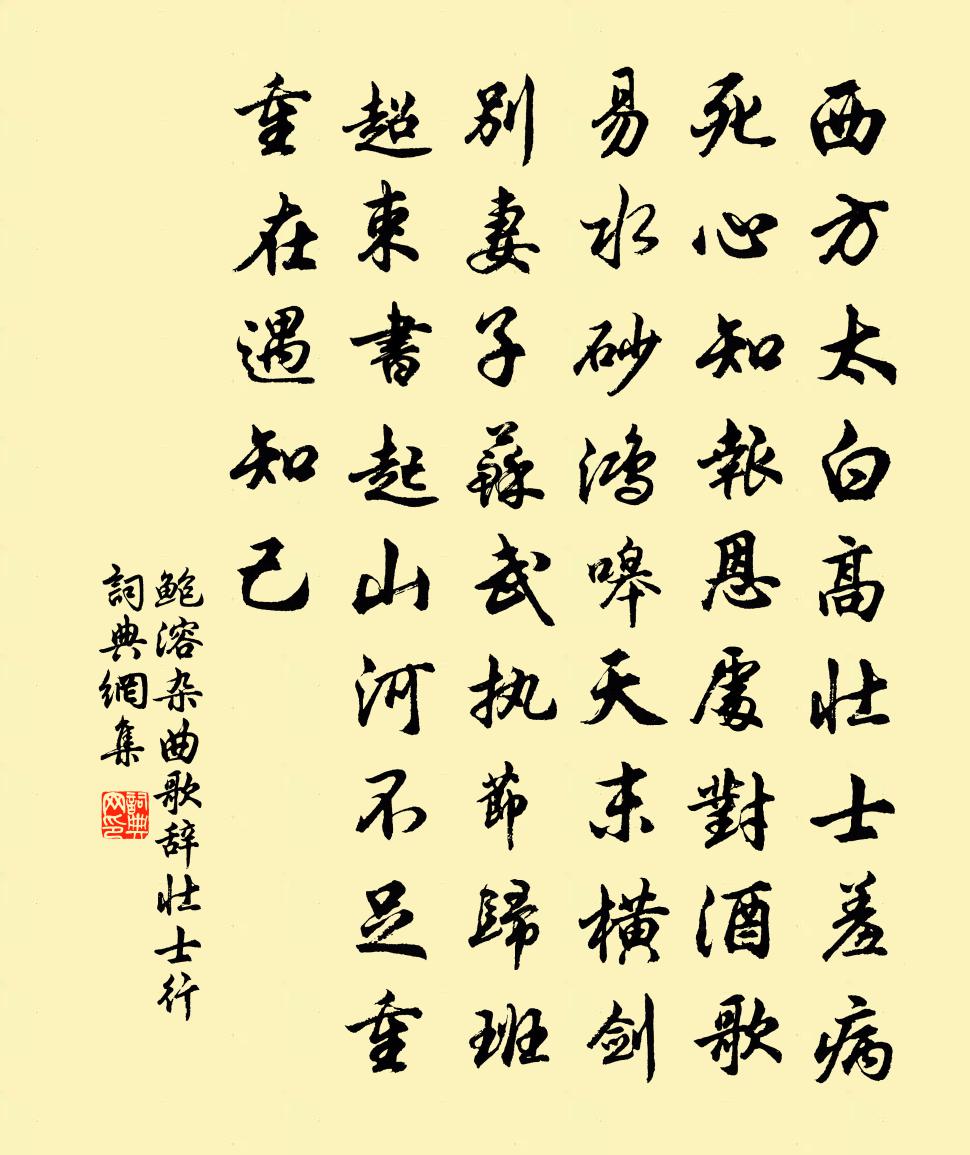 西方太白高壮士羞病
死心知報恩處對酒歌
易水砂鸿嗥天末横剑
别妻子蘇武执節歸班
超束書起山河不足重
重在遇知己
鲍溶杂曲歌辞壮士行
詞典網集
詞典
网印